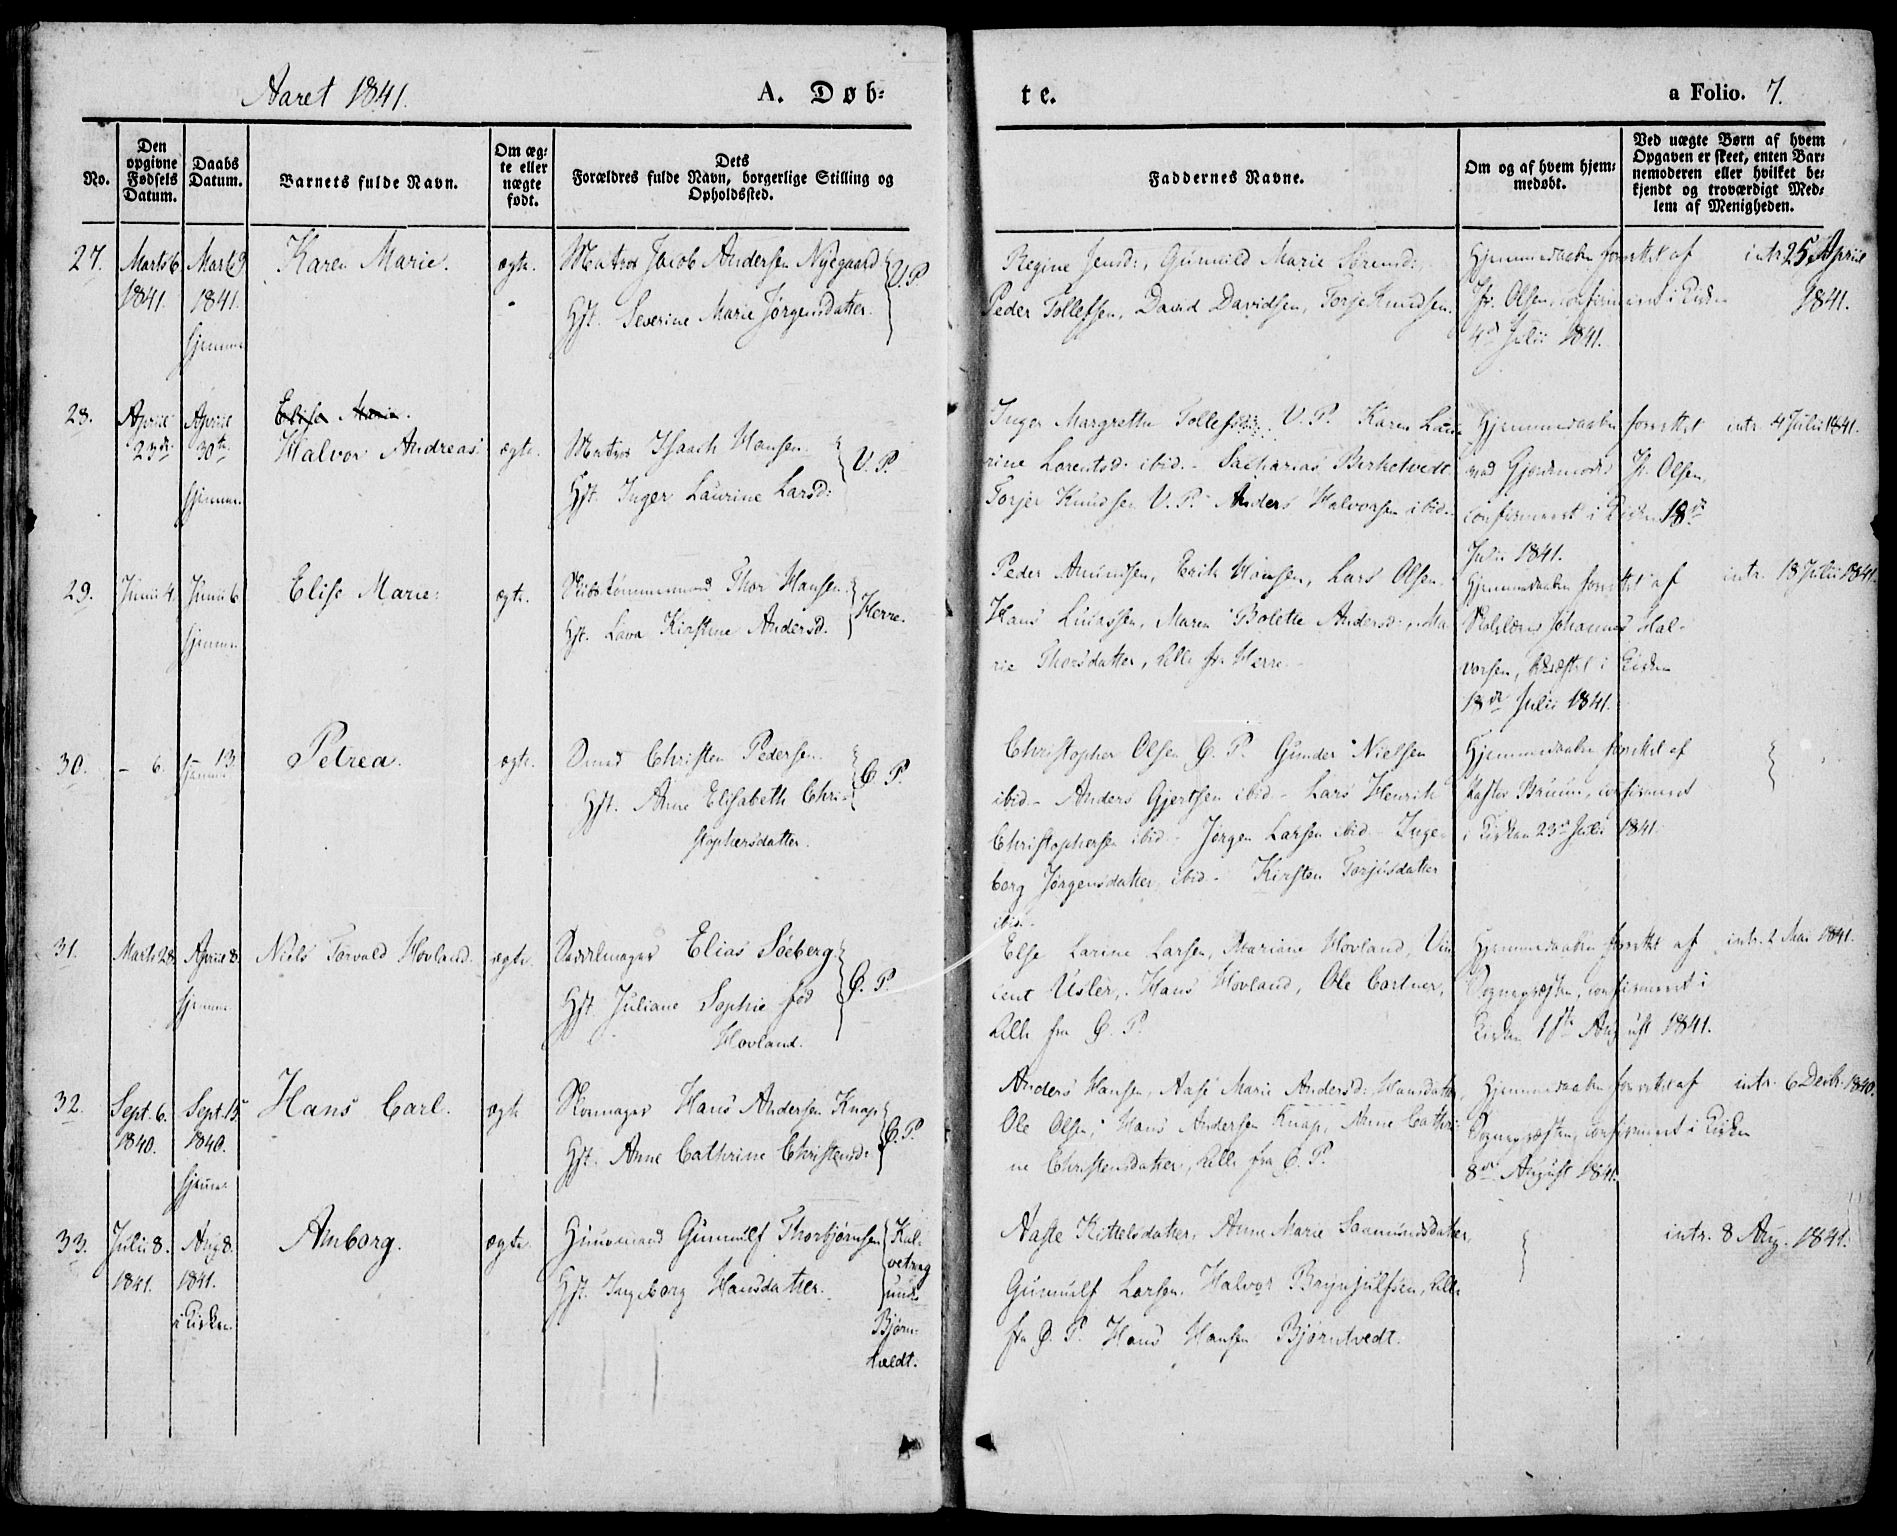 Aaret 1841.
A. Døb-
te.
a Folio. 7.
No.
Den
opgivne
Fødsels
Datum.
Daabs
Datum.
Barnets fulde Navn.
Om æg-
te eller
uægte
født.
Dets
Forældres fulde Navn, borgerlige Stilling og
Opholdssted.
Faddernes Navne.
Om og af hvem hjem-
medøbt.
Ved uægte Børn af hvem
Opgaven er skeet, enten Bar-
nemoderen eller hvilket be-
kjendt og troværdigt Med-
lem af Menigheden.
27.
Marts 6
1841.
Marts 9
1841.
hjemme
Karen Marie.
ægte.
Matros Jacob Andersen Nyegaard
Hst. Severine Marie Jørgensdatter.
V. P.
Regine Jensd:, Gunnild Marie Sørensd:,
Peder Tollefsen, David Davidsen, Torje Knudsen.
Hjemmedaaben forrettet af
Olsen, confirmeret i Kirken
4de Julii 1841.
intr. 25 April
1841.
28.
April
23de
April
30te
hjemme
Elise Marie.
Halvor Andreas
ægte.
Matros Isaach Hansen
Hst. Inger Laurine Larsd:
V. P.
Inger Margrethe Tollefsd: V. P. Karen Lau-
rine Lorentsd. ibid. - Sacharias Birketvedt
Torjer Knudsen V. P. Anders Halvorsen ibid.
Hjemmedaaben forrettet
ved Gjordemoder Olsen,
confirmeret i Kirken 18de
Julii 1841.
intr. 4 Julii 1841.
29.
Junii 4
Junii 6
hjemme
Elise Marie.
ægte.
Skibstømmermand Thor Hansen
Hst. Lava Kirstine Andersd.
Herre.
Peder Amundsen, Erik Hansen, Lars Olsen.
Hans Lucassen, Maren Bolette Andersd., Ma-
rie Thorsdatter, alle fr. Herre.
Hjemmedaaben forrettet af
Skolelærer Johannes Hal-
vorsen, bekræftet i Kirken
18de Julii 1841.
intr. 18 Julii 1841.
30.
- 6.
- 13.
hjemme
Petrea.
ægte.
Christen Pedersen
Hst. Anne Elisabeth Chri-
stophersdatter.
Ø. P.
Christopher Olsen Ø. P. Gunder Nielsen
ibid - Anders Gjertsen ibid - Lars Henrik
Christophersen ibid - Jørgen Larsen ibid - Inge-
borg Jørgensdatter ibid - Kirsten Torjusdatter
ibid.
Hjemmedaaben forrettet af
Pastor Bruun, confirmeret
i Kirken 25de Julii 1841.
31.
Marts 28
April 8
hjemme
Niels Torvald Hovland.
ægte.
Sadelmager Elias Søeberg
Hst. Juliane Sophie fød
Hovland.
Ø. P.
Else Larine Larsen, Mariane Hovland, Vin-
cent Usler, Hans Hovland, Ole Cortner,
alle fra Ø. P.
Hjemmedaaben forrettet af
Sognepræsten, confirmeret i
Kirken 1ste August 1841.
intr. 2 Mai 1841.
32.
Sept. 6.
1840.
Sept. 15
1840.
hjemme
Hans Carl.
ægte
Skomager Hans Andersen Knap
Hst. Anne Cathrine Christensd.
Ø. P.
Anders Hansen, Aase Marie Andersd: Hansdatter,
Ole Olsen, Hans Andersen Knap, Anne Cathri-
ne Christensdatter, alle fra Ø. P.
Hjemmedaaben forrettet af
Sognepræsten, confirmeret i Kirken
8de August 1841.
intr. 6 Decbr. 1840.
33.
Julii 8.
1841.
Aug 8.
1841.
i Kirken.
Amborg.
ægte.
Huusmand Gunnulf Thorbjørnsen
Hst. Ingeborg Hansdatter.
Kal-
vetrag
under
Bjørn-
tvedt.
Aaste Kittelsdatter, Anne Marie Saamundsdatter,
Gunnulf Larsen, Halvor Brynjulfsen, alle
fra Ø. P. Hans Hansen Bjørntvedt.
intr. 8 Aug. 1841.